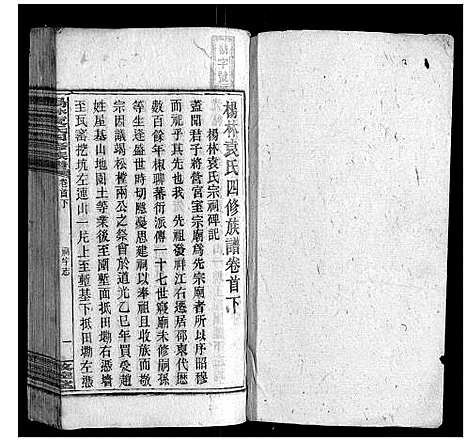 楊林袁氏四修族譜卷首下
楊林袁氏宗祠碑記
蓋聞君子將營宮室宗廟為先宗廟者所以序昭穆
而祀乎其先也我 先祖發祥江右遷居邵東代歷
數百餘年椒聊蕃衍派傳一十七世寢廟未修嗣孫
等生逢盛世時切隱憂思建祠以奉祖且收族而敬
宗因議場松樑兩公之祭會於道光乙巳年買受趙
姓屋基山地園土等業於岩圍塹至前抵田塝右憑墻
至瓦窑挖坑左連山一片上至塹基下抵田塝左憑
卷首下
祠堂志
一